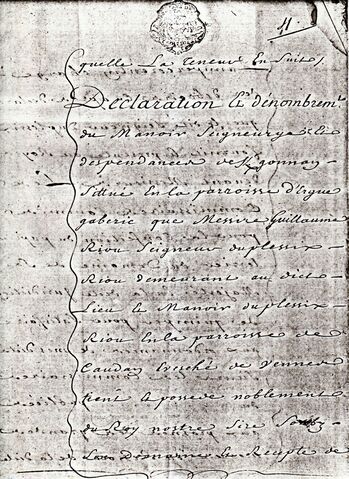 11
quelle La teneur En Suit /
Declaration Et dénombremt
du Manoir Seigneurgal Et
despendances de Kgonnan
Sittué En La parroisse d'Ergue
gaberic que Messire Guillaume
Riou Seigneur duplessix
Riou demeurant au dict
Lieu Et Manoir duplessix
Riou En La parroisse de
Caudan Evesché de Vennes
tient Et possede noblement
du Roy nostre Sire Soubz
Son Domaine Et Recepte de